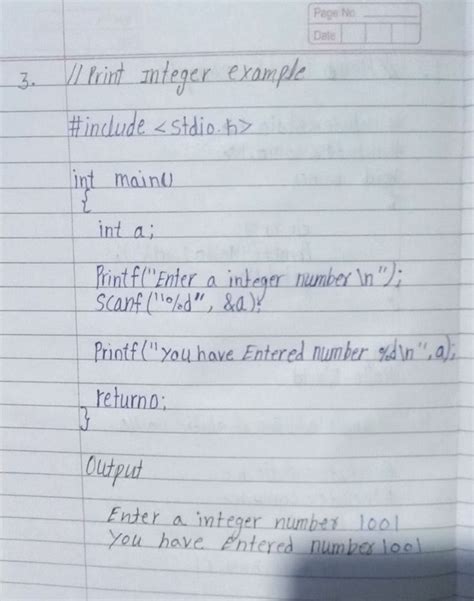 Page No
Date
3. // Print Integer example
#include <stdio.h>
int main()
{
int a;
Printf("Enter a integer number \n");
Scanf("%d", &a);
Printf("You have Entered number %d\n", a);
return0;
}
Output
Enter a integer number 1001
You have Entered number 1001